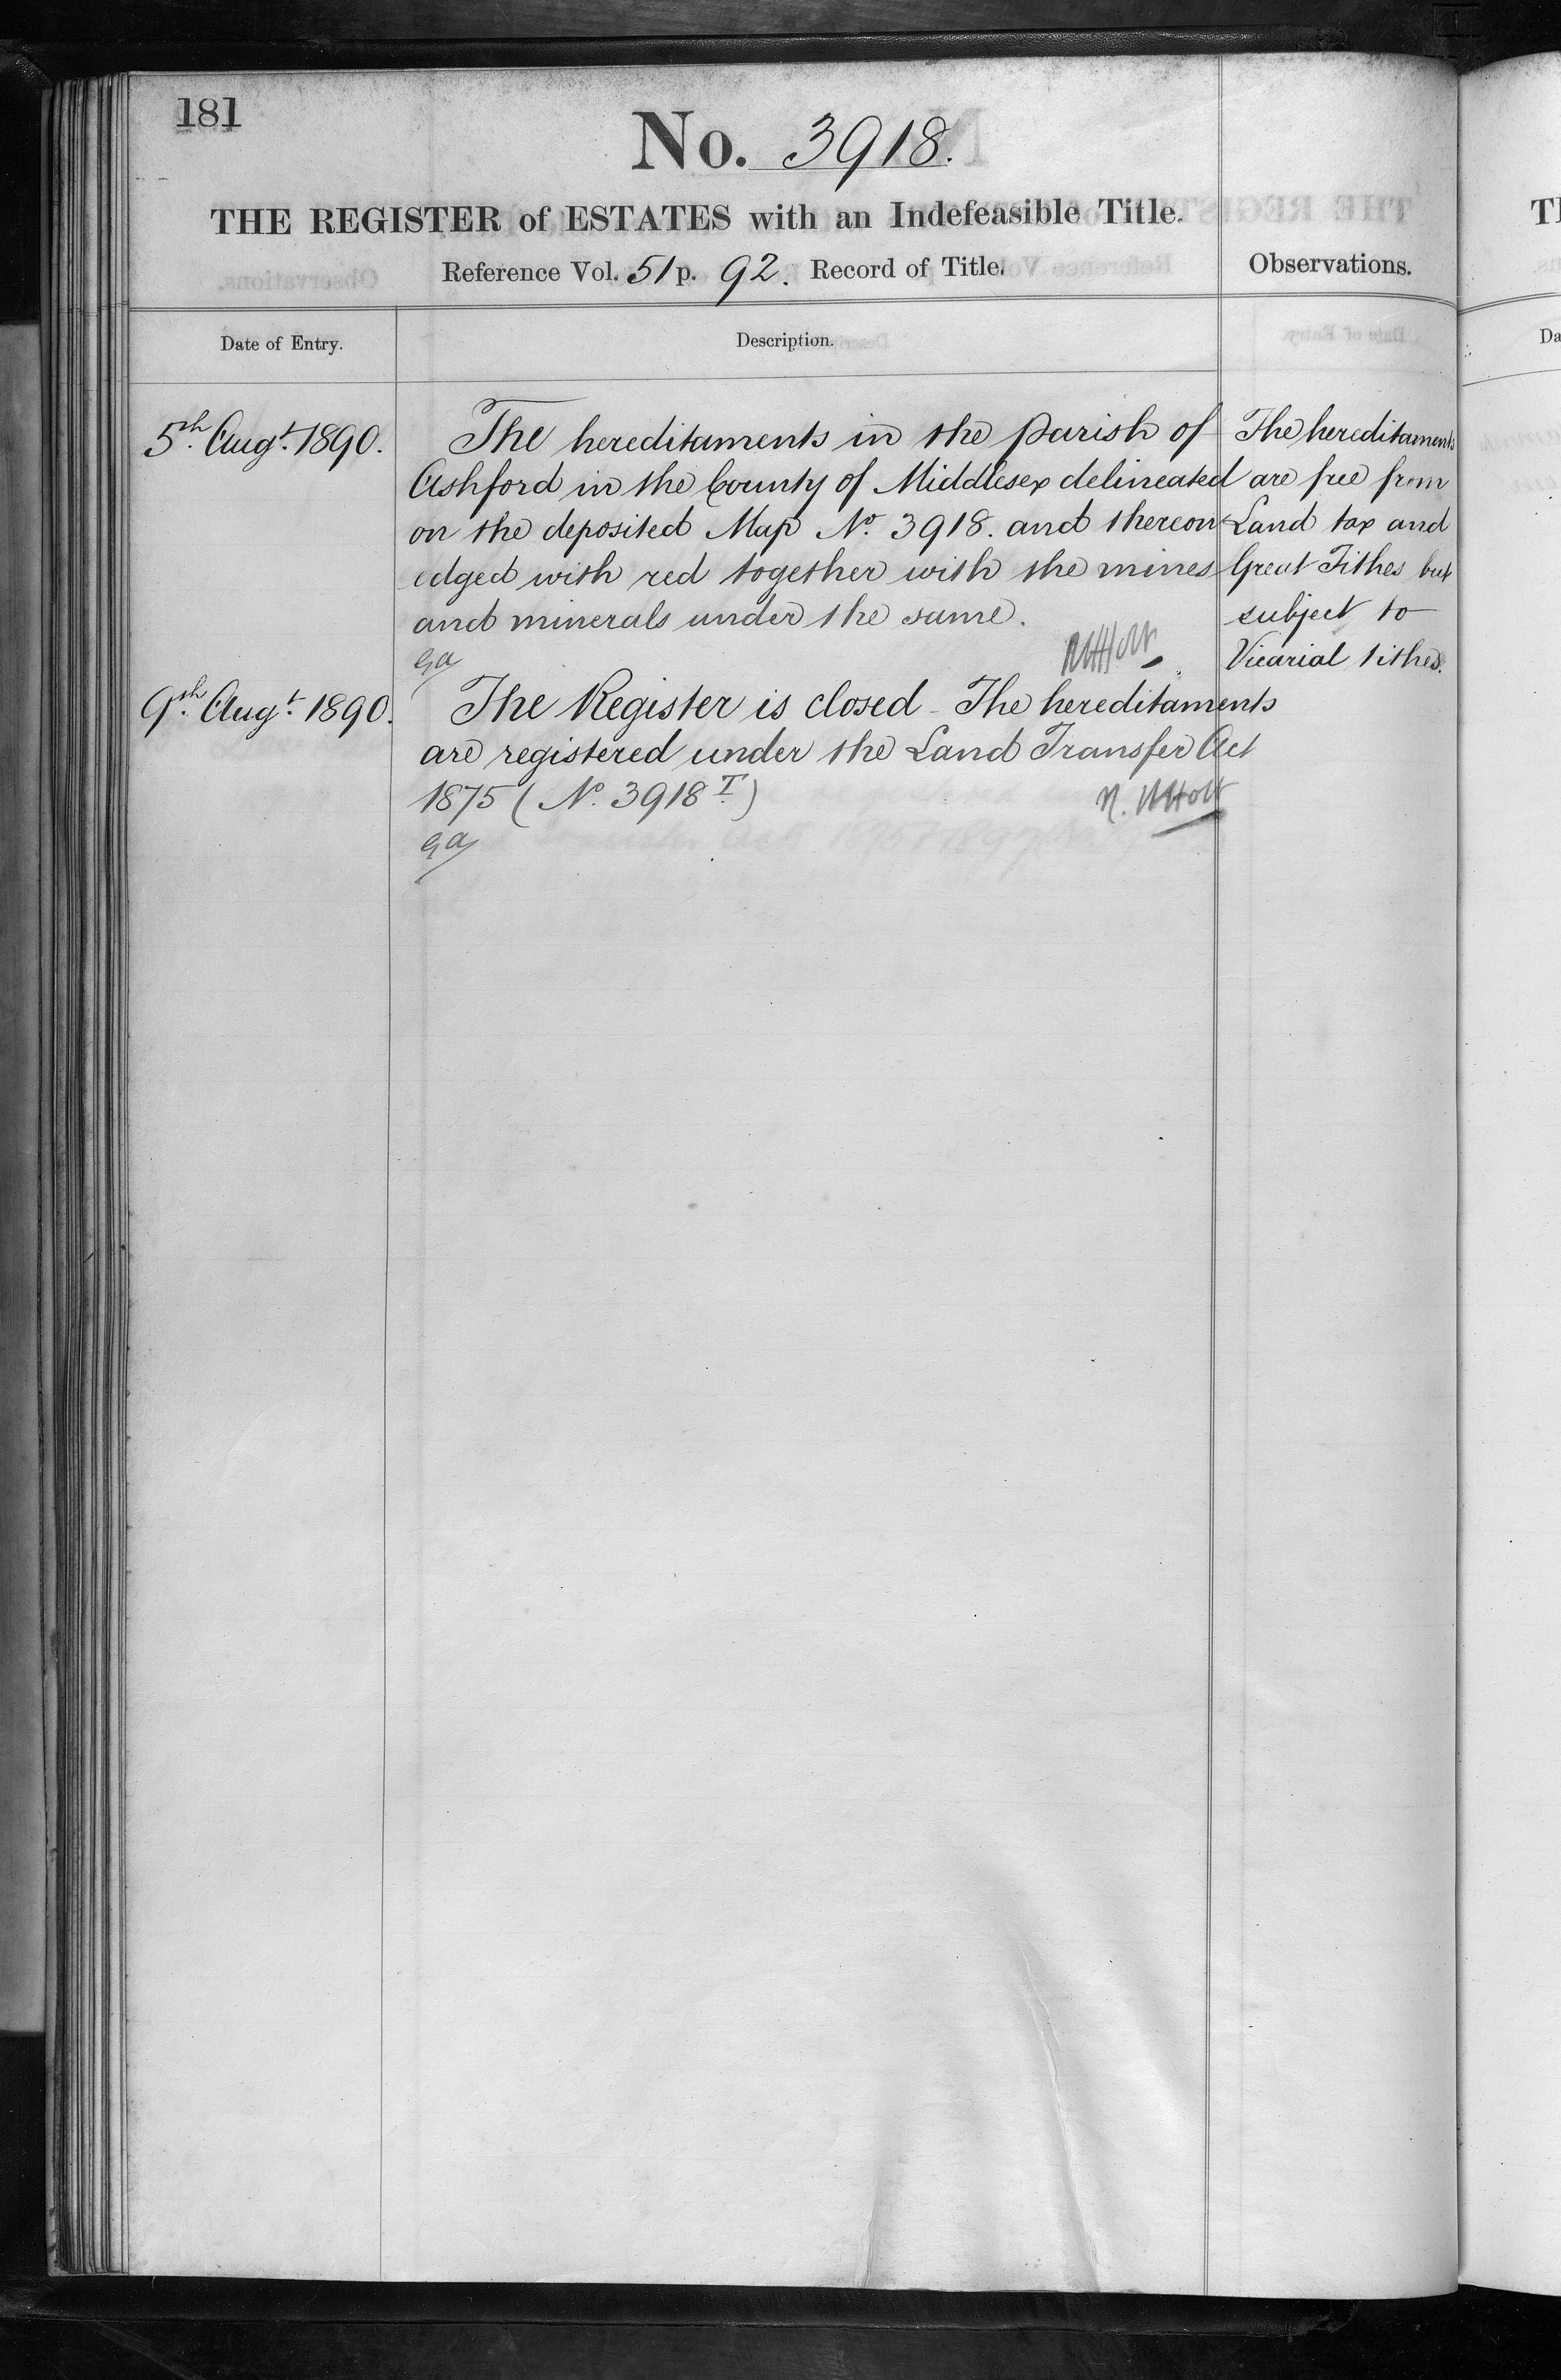 181
No. 3918.
THE REGISTER of ESTATES with an Indefeasible Title.
Reference Vol. 51 p. 92. Record of Title.
Observations.
Date of Entry.
Description.
5th Augt. 1890.
The hereditaments in the parish of
Ashford in the County of Middlesex delineated
on the deposited Map No. 3918. and thereon
edged with red together with the mines
and minerals under the same.
The hereditaments
are free from
Land tax and
Great Tithes but
subject to
Vicarial tithes.
9th Augt. 1890.
The Register is closed - The hereditaments
are registered under the Land Transfer Act
1875 (No. 3918 T.)